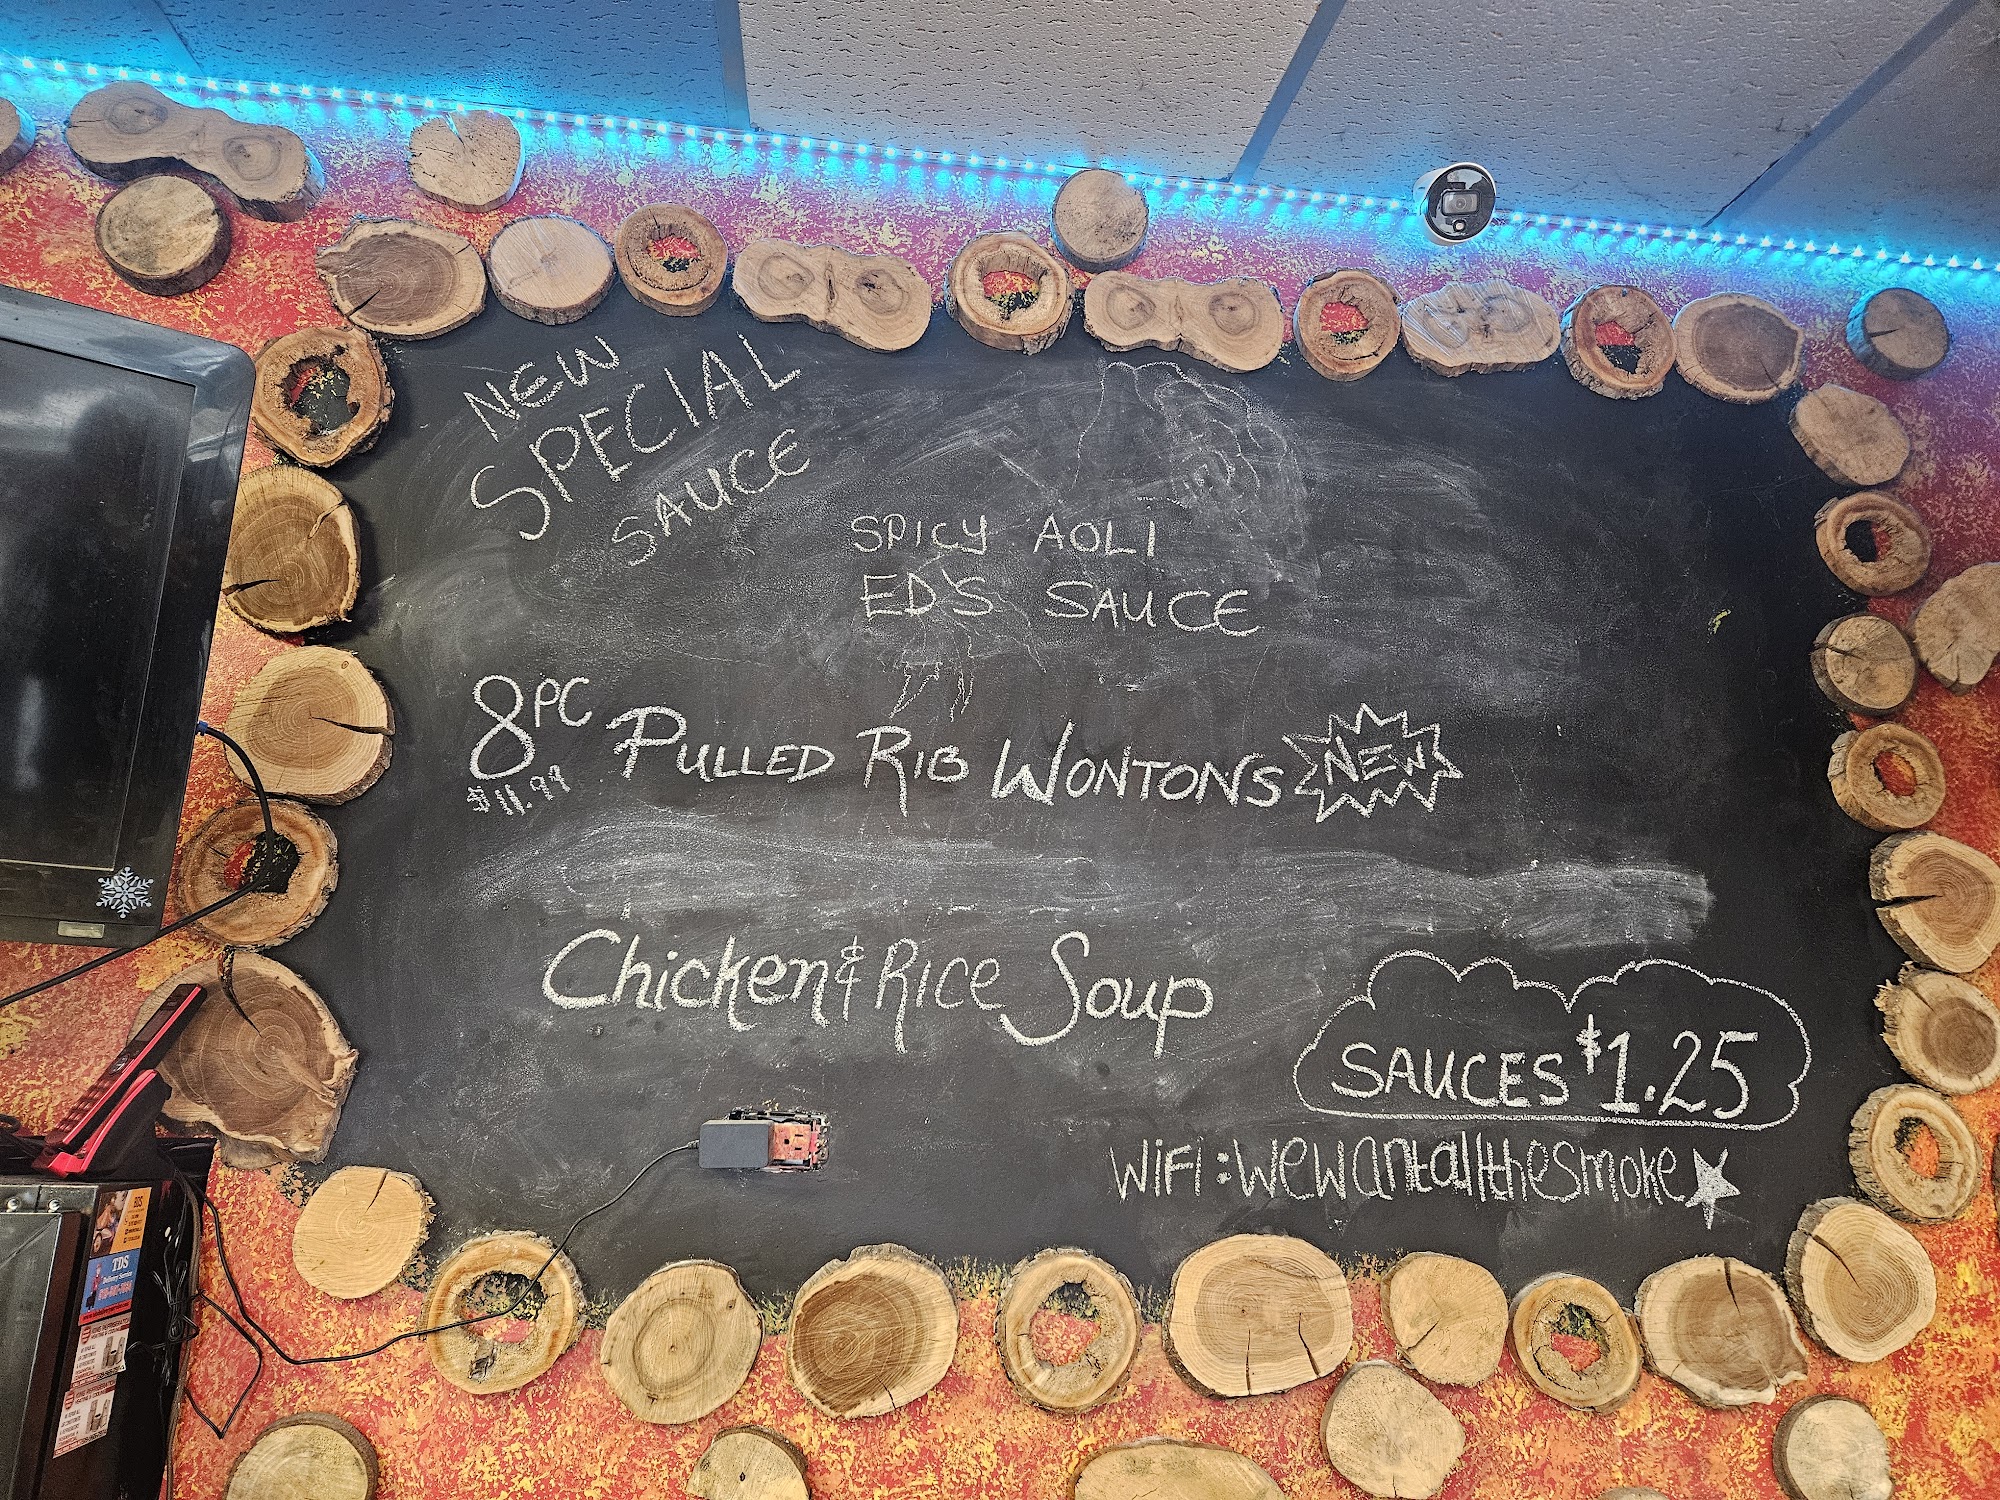 NEW
SPECIAL
SAUCE
SPICY AOLI
ED'S SAUCE
8PC PULLED RIB WONTONS NEW
$11.99
Chicken & Rice Soup
SAUCES $1.25
WiFi: wewantallthesmoke
TDS
Delivery Service